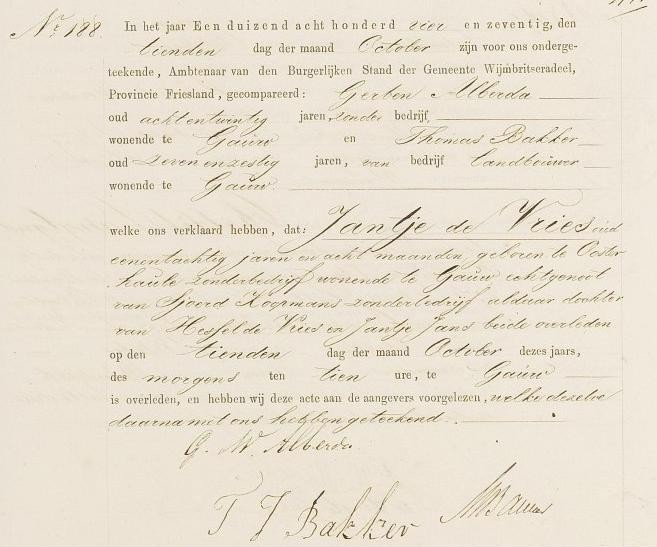 Nr. 188. In het jaar Een duizend acht honderd vier en zeventig, den
tienden dag der maand October zijn voor ons onderge-
teekende, Ambtenaar van den Burgerlijken Stand der Gemeente Wijmbritseradeel,
Provincie Friesland, gecompareerd: Gerben Alberda
oud achtentwintig jaren, zonder bedrijf
wonende te Gauw en Thomas Bakker
oud zevenenzestig jaren, van bedrijf landbouwer
wonende te Gauw.
welke ons verklaard hebben, dat: Jantje de Vries oud
eenentachtig jaren en acht maanden, geboren te Ooster
haule zonder bedrijf wonende te Gauw echtgenoot
van Sjoerd Koopmans zonder bedrijf aldaar dochter
van Hessel de Vries en Jantje Jans beide overleden
op den tienden dag der maand October dezes jaars,
des morgens ten tien ure, te Gauw
is overleden, en hebben wij deze acte aan de aangevers voorgelezen, welke dezelve
daarna met ons hebben geteekend.
G. W. Alberda
T J Bakker